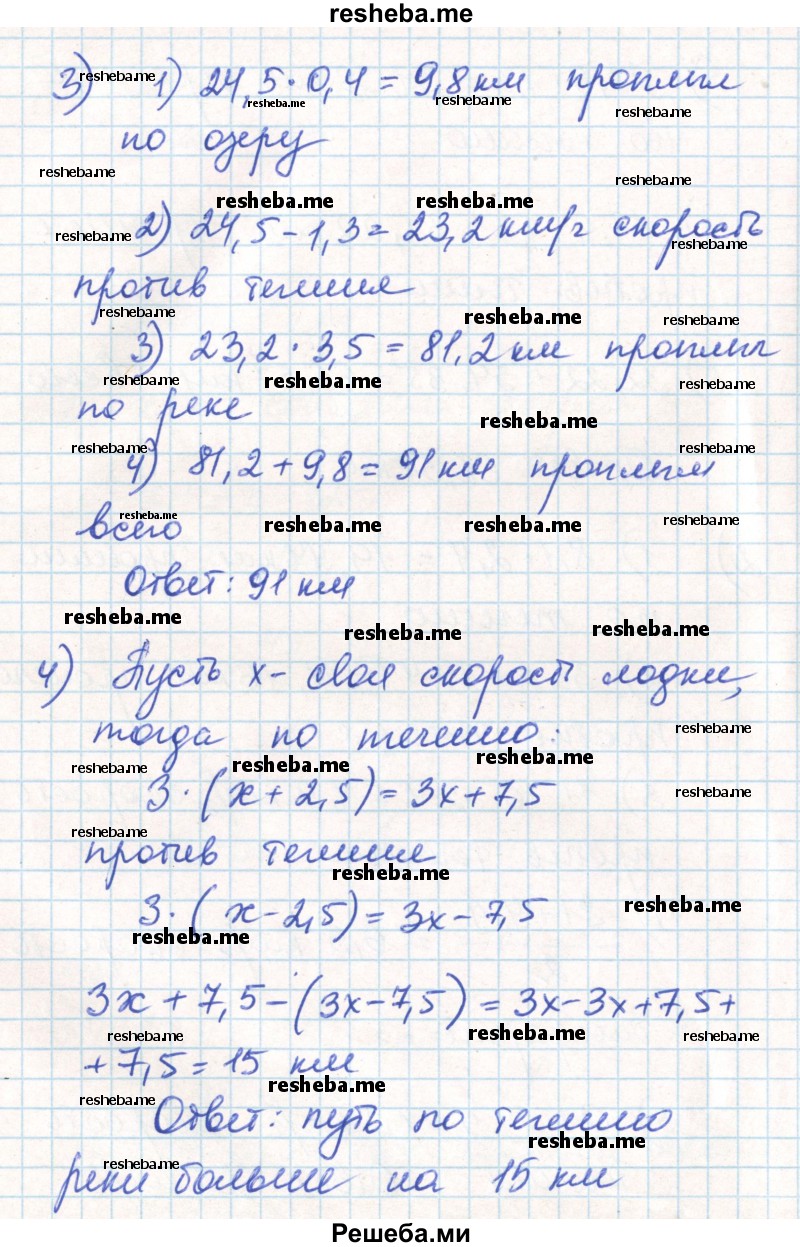 resheba.me
3) 1) 24,5 · 0,4 = 9,8 км проплыл
по озеру
2) 24,5 - 1,3 = 23,2 км/г скорость
против течения
3) 23,2 · 3,5 = 81,2 км проплыл
по реке
4) 81,2 + 9,8 = 91 км проплыл
всего
Ответ: 91 км
4) Пусть x - своя скорость лодки,
тогда по течению:
3 · (x + 2,5) = 3x + 7,5
против течения
3 · (x - 2,5) = 3x - 7,5
3x + 7,5 - (3x - 7,5) = 3x - 3x + 7,5 +
+ 7,5 = 15 км
Ответ: путь по течению
реки больше на 15 км
Решеба.ми